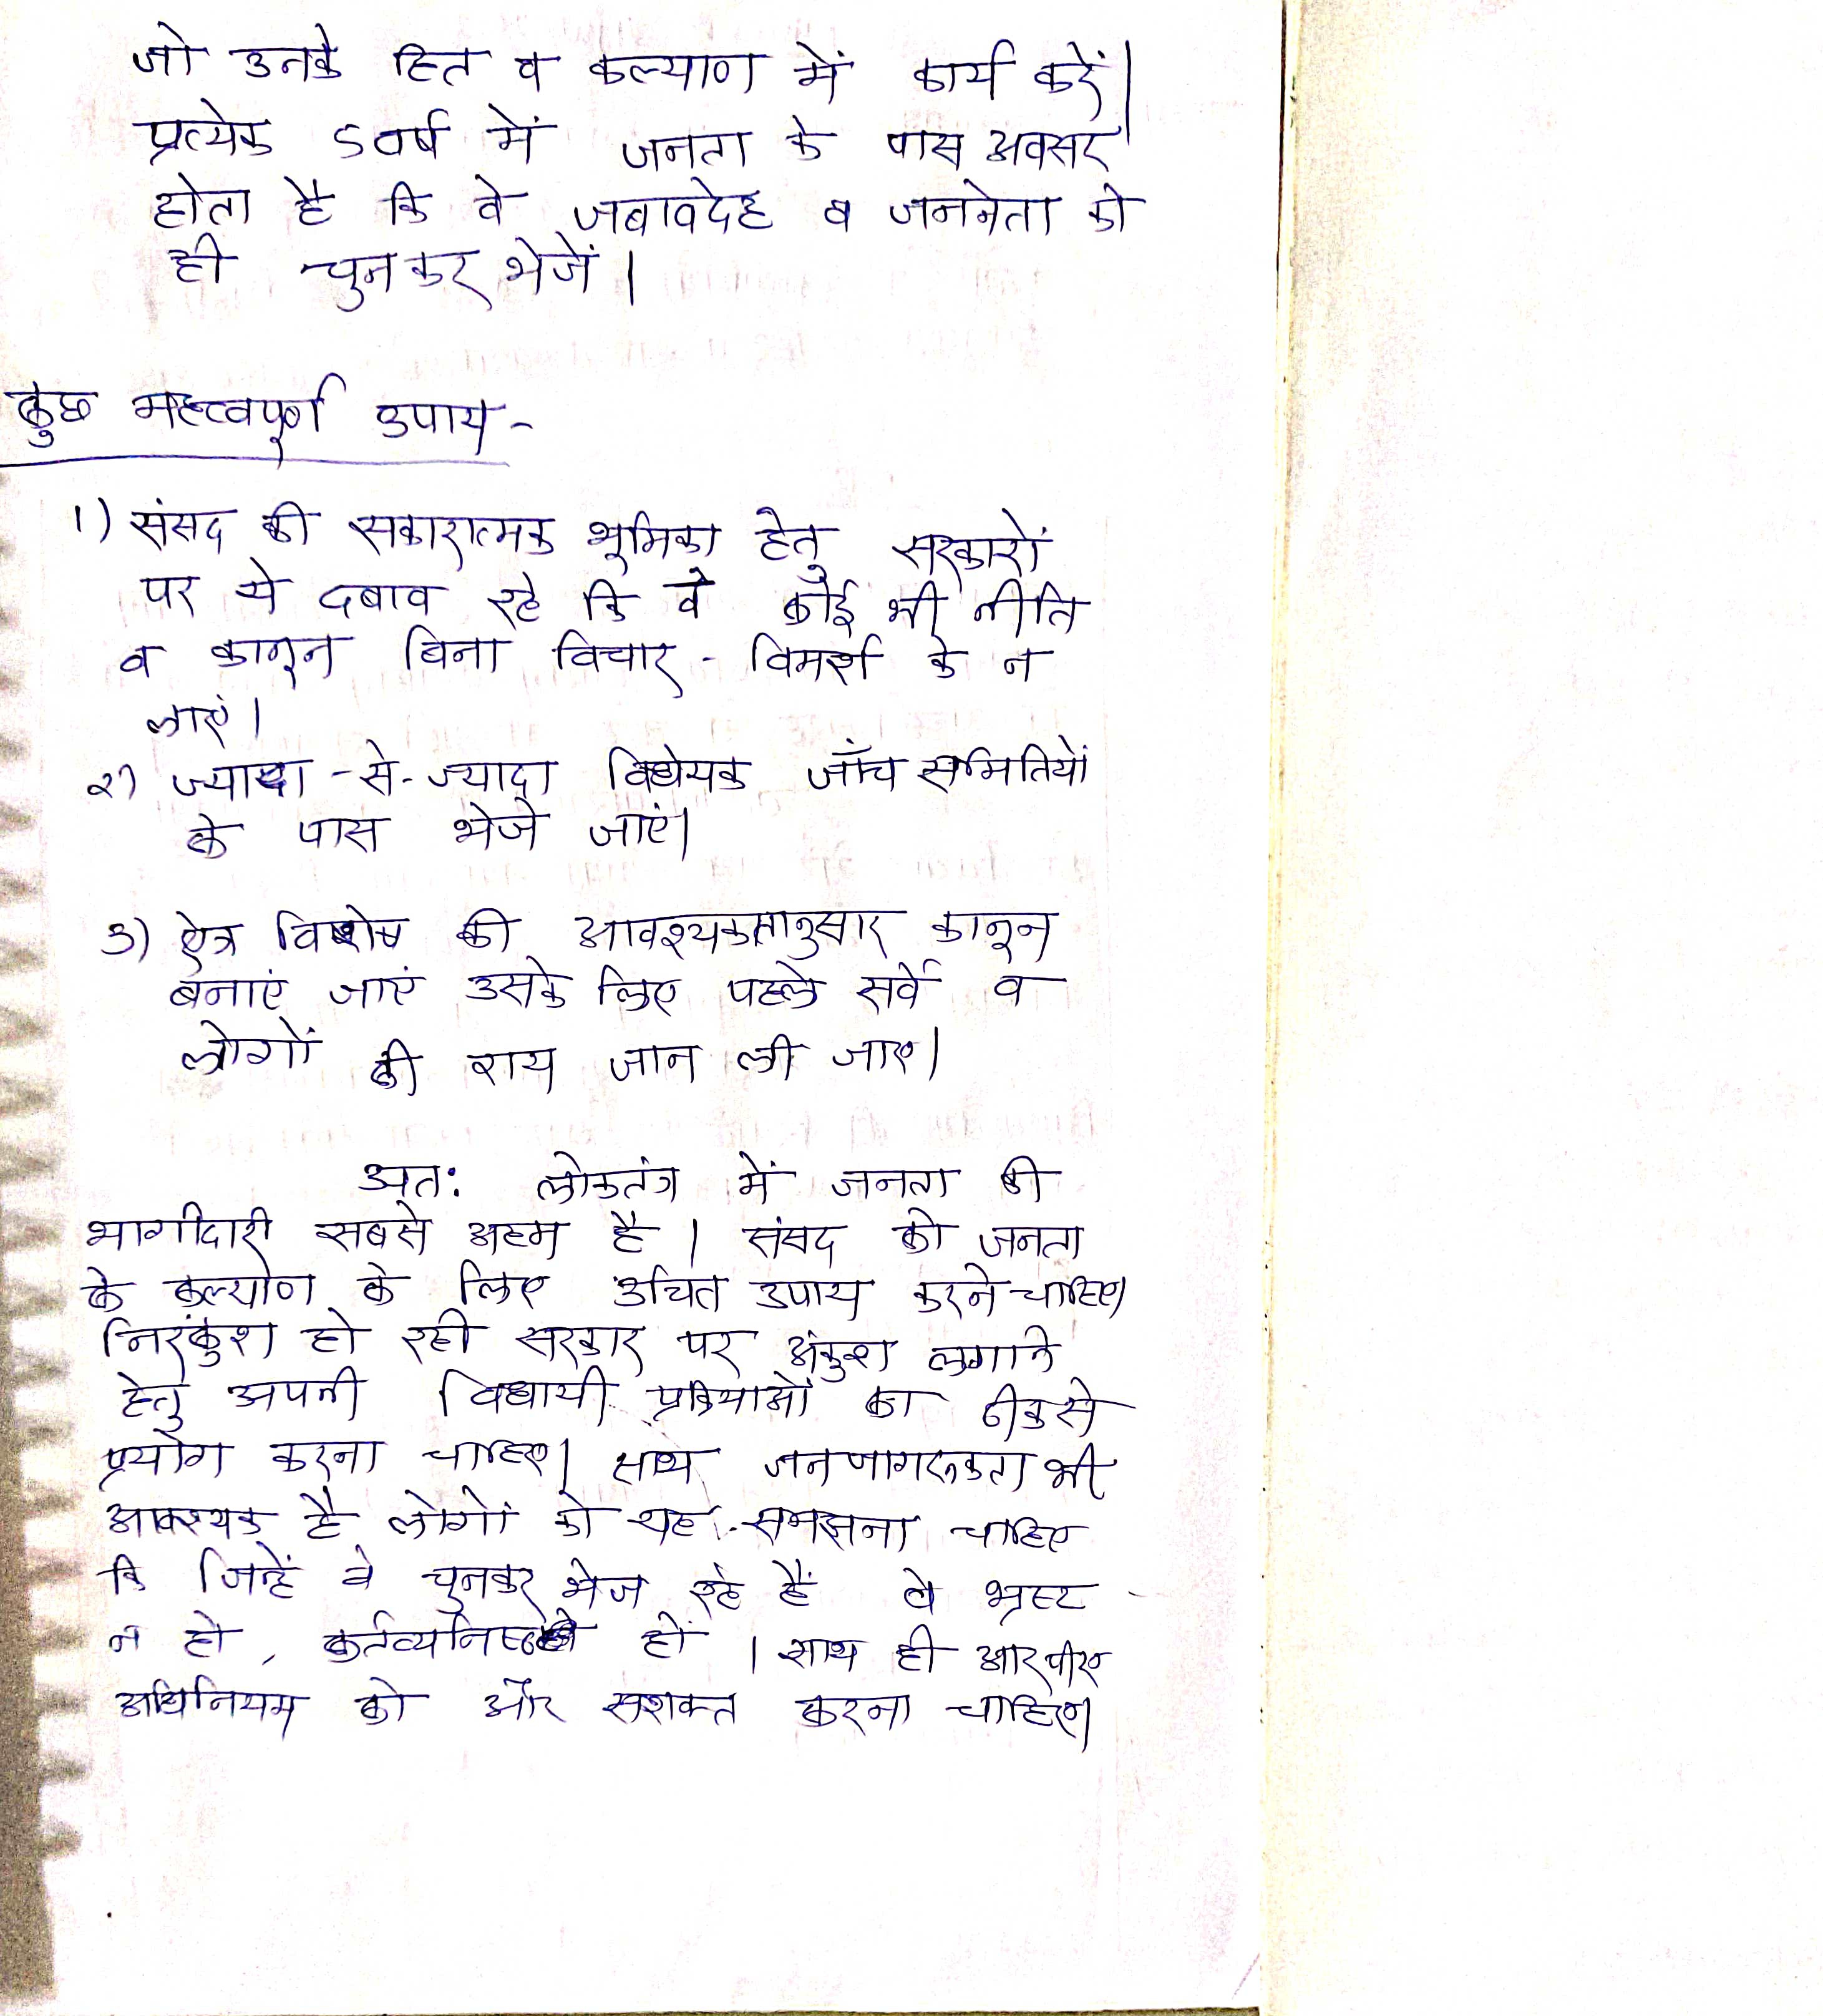 जो उनके हित व कल्याण में कार्य करें।
प्रत्येक 5 वर्ष में जनता के पास अवसर
होता है कि वे जवाबदेह व जननेता को
ही चुनकर भेजें।
कुछ महत्वपूर्ण उपाय -
1) संसद की सकारात्मक भूमिका हेतु सरकारों
पर ये दबाव रहे कि वे कोई भी नीति
व कानून बिना विचार - विमर्श के न
लाएं।
2) ज्यादा -से- ज्यादा विधेयक जाँच समितियों
के पास भेजे जाएं।
3) क्षेत्र विशेष की आवश्यकतानुसार कानून
बनाएं जाएं उसके लिए पहले सर्वे व
लोगों की राय जान ली जाए।
अत: लोकतंत्र में जनता की
भागीदारी सबसे अहम है। संसद को जनता
के कल्याण के लिए उचित उपाय करने चाहिए।
निरंकुश हो रही सरकार पर अंकुश लगाने
हेतु अपनी विधायी प्रक्रियाओं का ठीक से
प्रयोग करना चाहिए। साथ जनजागरूकता भी
आवश्यक है लोगों को यह समझना चाहिए
कि जिन्हें वे चुनकर भेज रहे हैं वे भ्रष्ट
न हो, कर्तव्यनिष्ठ हों। साथ ही आरपीए
अधिनियम को और सशक्त करना चाहिए।